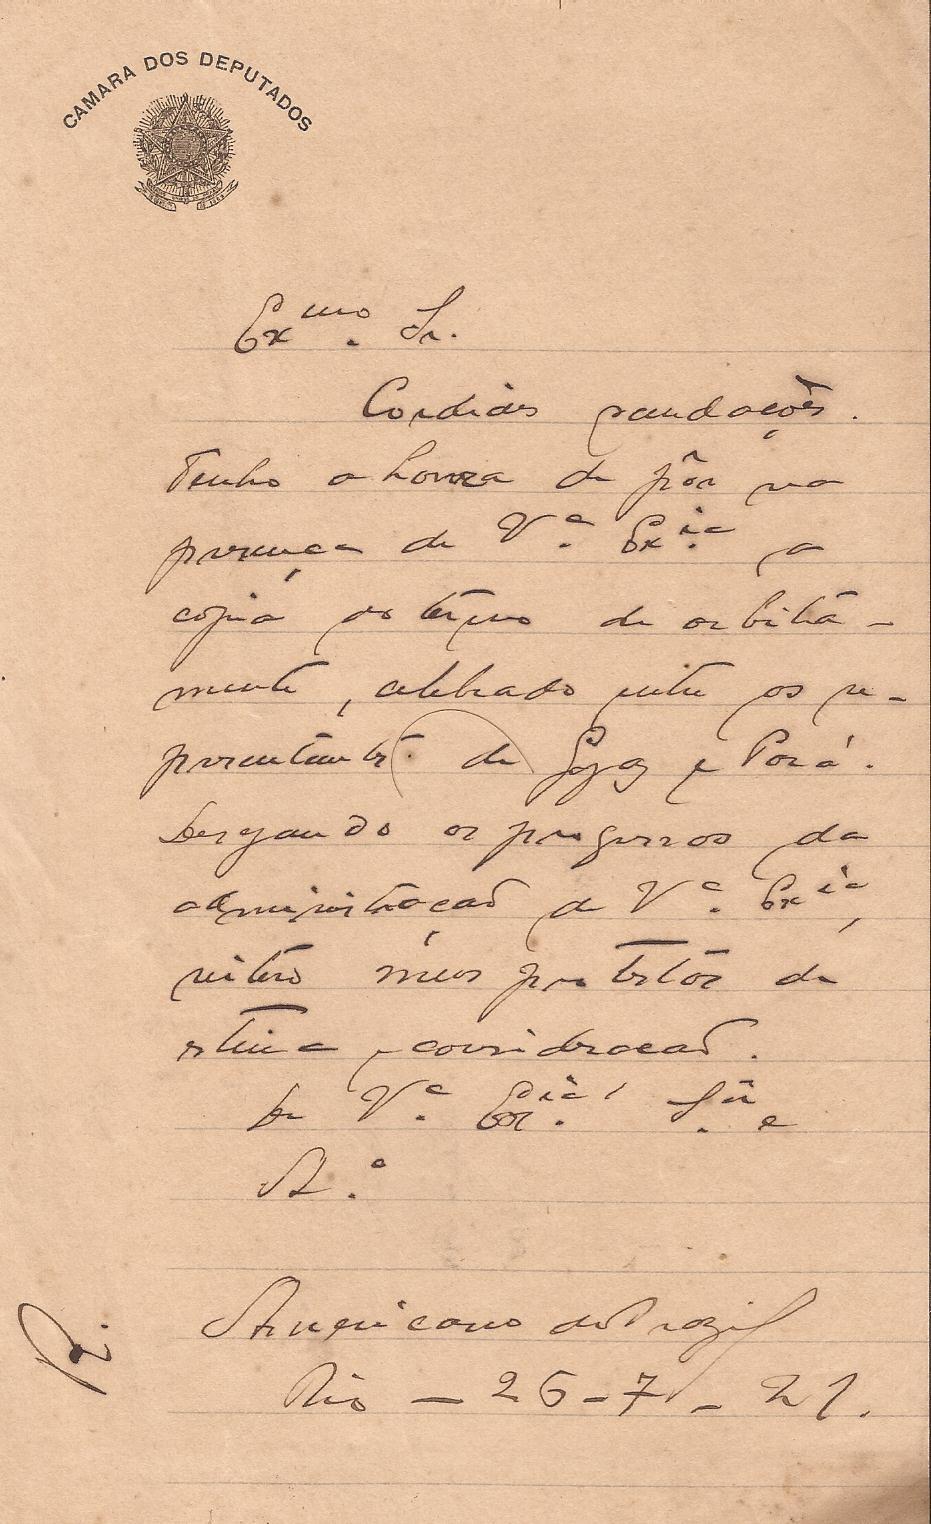 CAMARA DOS DEPUTADOS
Exmo. Sr.
Cordiaes saudações.
Tenho a honra de pôr na
presença de Vª. Exia. a
copia do termo de arbitra-
mento, celebrado entre os re-
presentantes de Goyaz e Pará.
Desejando os progressos da
administração de Vª. Exia,
reitero meus protestos de
estima e consideração.
De Vª. Exia. e
Americano do Brazil
Rio - 26-7-21.
R.